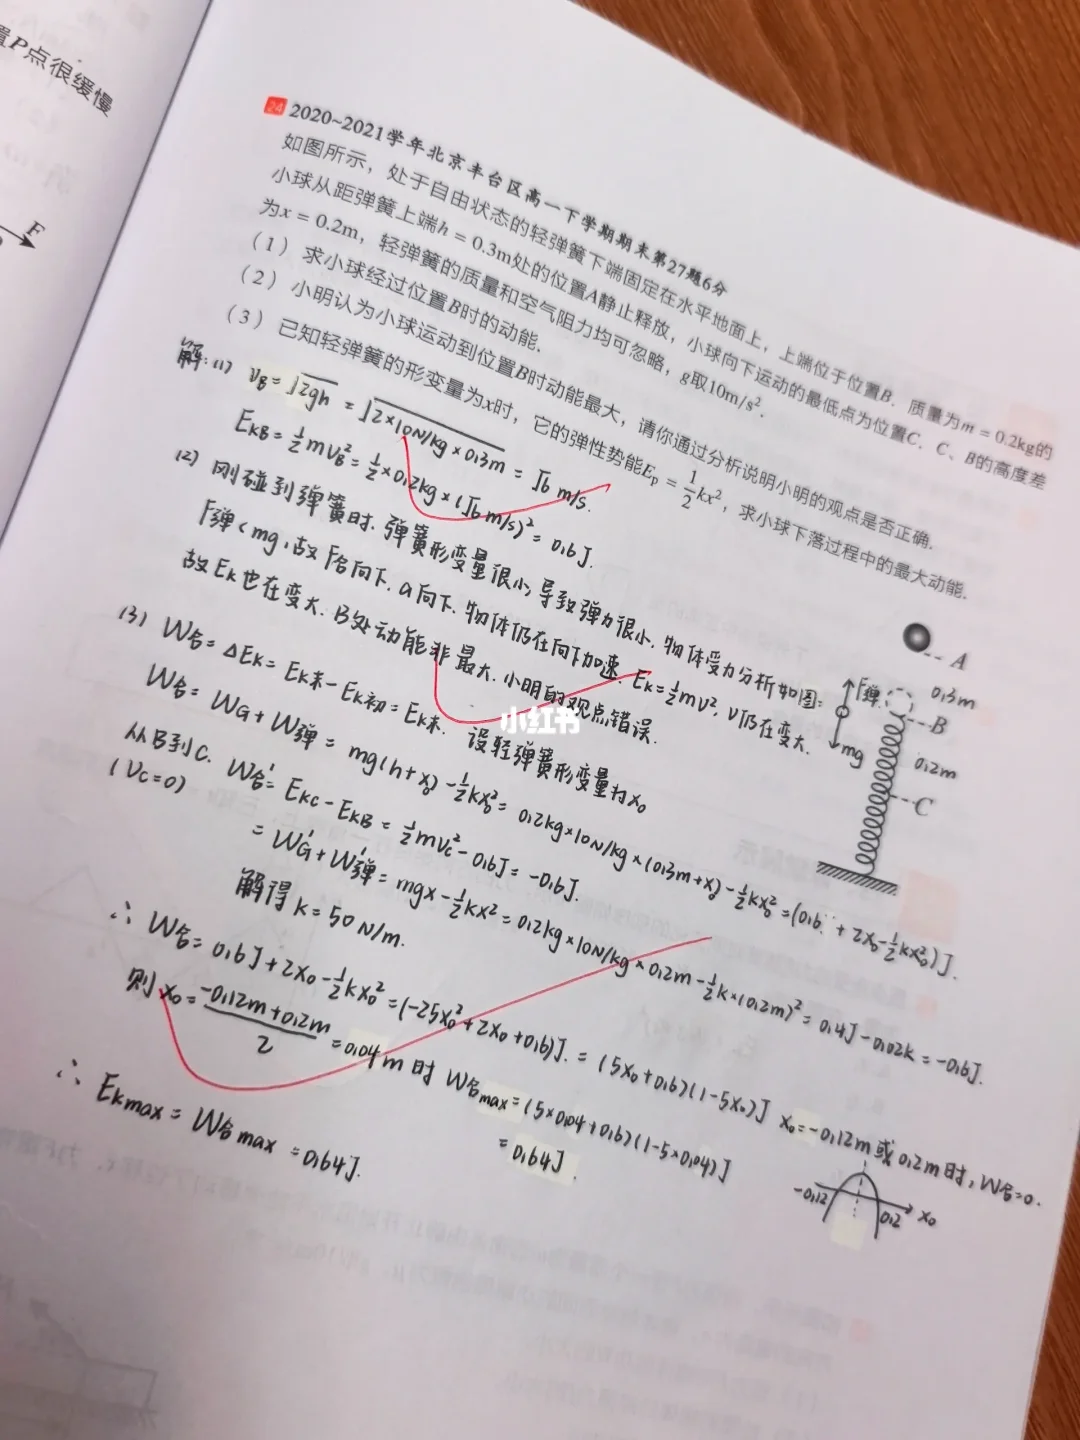 置P点很缓慢
F
24 2020~2021学年北京丰台区高一下学期期末第27题6分
如图所示，处于自由状态的轻弹簧下端固定在水平地面上，上端位于位置B．质量为m = 0.2kg的
小球从距弹簧上端h = 0.3m处的位置A静止释放，小球向下运动的最低点为位置C．C、B的高度差
为x = 0.2m，轻弹簧的质量和空气阻力均可忽略，g取10m/s²．
（1）求小球经过位置B时的动能．
（2）小明认为小球运动到位置B时动能最大，请你通过分析说明小明的观点是否正确．
（3）已知轻弹簧的形变量为x时，它的弹性势能Eₚ = 1/2 kx²，求小球下落过程中的最大动能．
解：(1) VB = √2gh = √2×10N/kg×0.3m = √6 m/s.
EKB = ½mVB² = ½×0.2kg×(√6 m/s)² = 0.6J.
(2) 刚碰到弹簧时．弹簧形变量很小，导致弹力很小．物体受力分析如图：
F弹<mg，故F合向下．a向下．物体仍在向下加速．EK=½mV²，V仍在变大．
故EK也在变大．B处动能非最大．小明的观点错误．
F弹
mg
A
0.3m
B
0.2m
C
(3) W合 = ΔEK = EK末 - EK初 = EK末． 设轻弹簧形变量为x₀
W合 = WG + W弹 = mg(h+x₀) - ½kx₀² = 0.2kg×10N/kg×(0.3m+x₀) - ½kx₀² = (0.6 + 2x₀ - ½kx₀²)J.
从B到C．W合' = EKC - EKB = ½mVC² - 0.6J = -0.6J.
(VC=0)
= WG' + W弹' = mgx - ½kx² = 0.2kg×10N/kg×0.2m - ½k×(0.2m)² = 0.4J - 0.02k = -0.6J.
解得 k = 50N/m.
∴ W合 = 0.6J + 2x₀ - ½kx₀² = (-25x₀² + 2x₀ + 0.6)J. = (5x₀+0.6)(1-5x₀)J x₀=-0.12m或0.2m时，W合=0.
则 x₀ = (-0.12m+0.2m)/2 = 0.04m时 W合max = (5×0.04+0.6)(1-5×0.04)J
= 0.64J
∴ EKmax = W合max = 0.64J.
-0.12
0.2
x₀
小红书